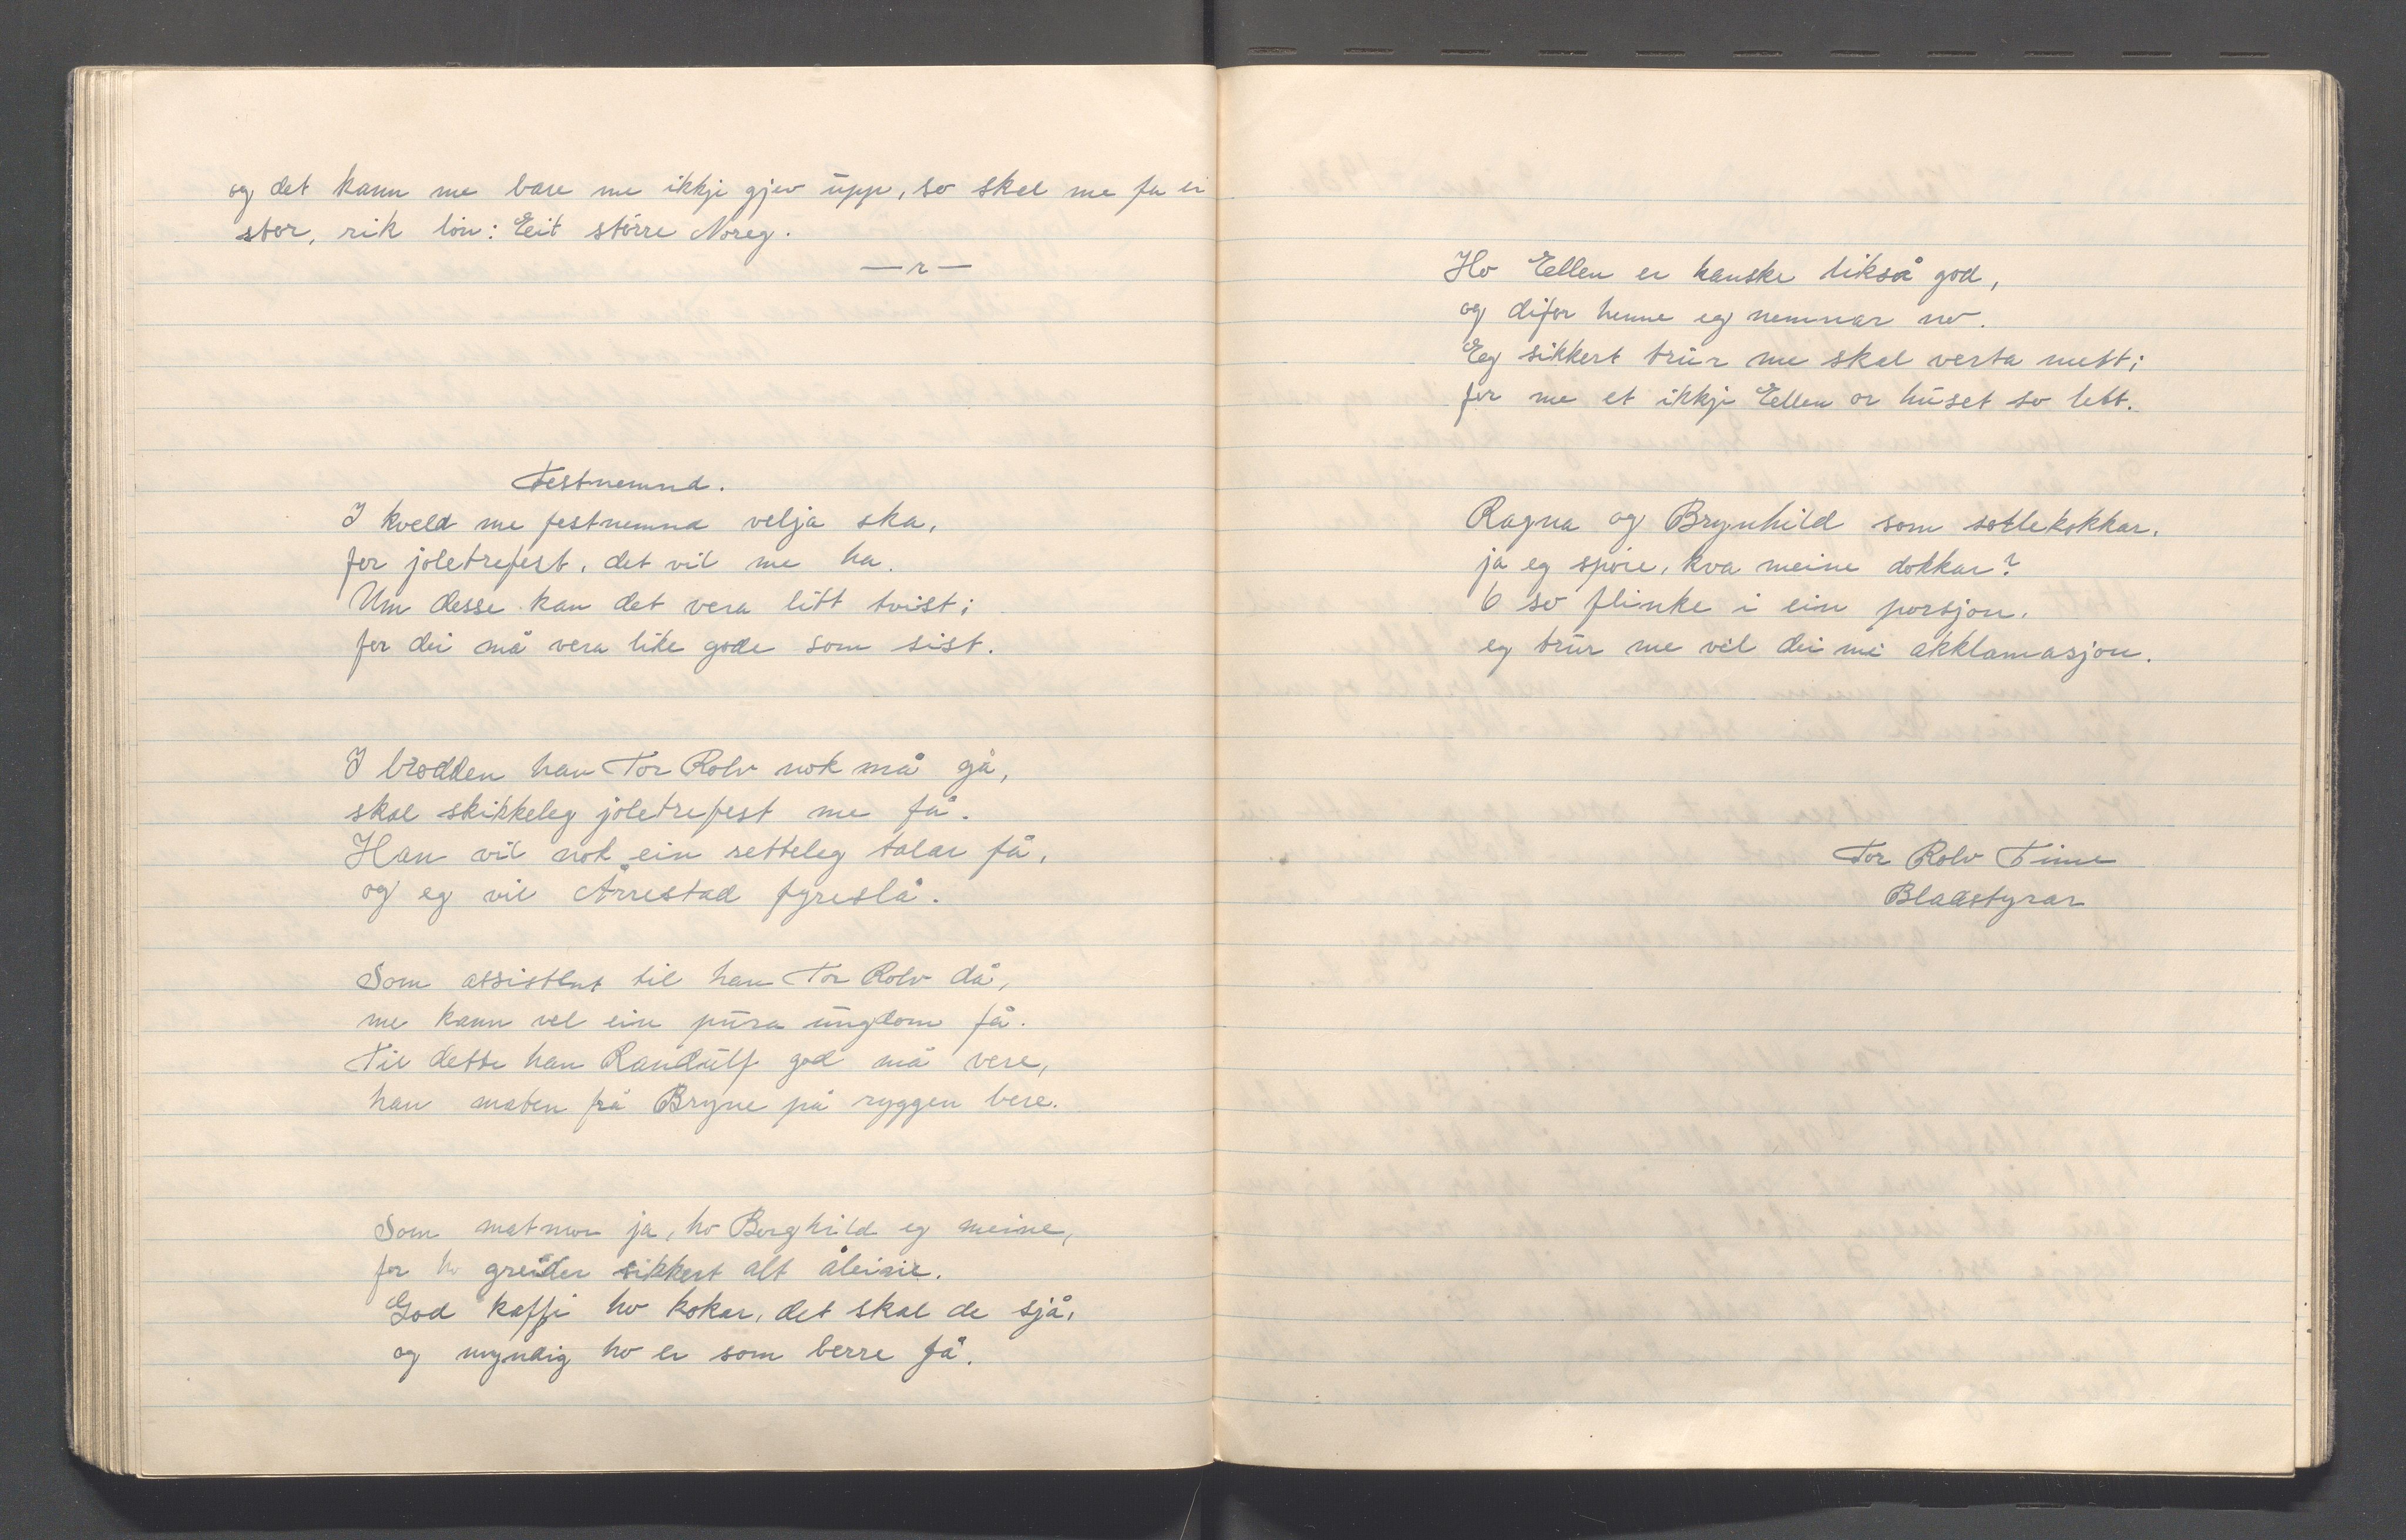 og det kann me bare me ikkji gjev upp, so skal me fa ei
stor, rik løn: Eit större Noreg.
— r —
Festnemnd.
I kveld me festnemnd velja ska,
for joletrefest, det vil me ha.
Um desse kan det vera litt tvist;
for dei må vera like gode som sist.
I brodden han Tor Rolv nok må gå,
skal skikkeleg joletrefest me få.
Han vil nok ein retteleg talar få,
og eg vil Årrestad fyreslå.
Som assistent til han Tor Rolv då,
me kann vel ein pura ungdom få.
Til dette han Randulf god må vere,
han maten frå Bryne på ryggen bere.
Som matmor ja, ho Borghild eg meine,
for ho greider sikkert alt åleine.
God kaffi ho kokar, det skal de sjå,
og myndig ho er som berre få.
Ho Ellen er kanske likså god,
og difor henne eg nemnar no.
Eg sikkert trur me skal verta mett;
for me et ikkji Ellen or huset so lett.
Ragna og Brynhild som sotlekokkar,
ja eg spøre, kva meine dokkar?
6 so flinke i ein porsjon,
eg trur me vel dei mi akklamasjon.
Tor Rolv Time
Bladstyrar